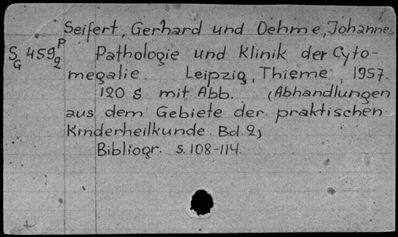 Seifert, Gerhard und Oehme, Johannes
SG 459 P2 Pathologie und Klinik der Cyto-
megalie. Leipzig, Thieme, 1957.
120 S mit Abb. (Abhandlungen
aus dem Gebiete der praktischen
Kinderheilkunde. Bd. 2)
Bibliogr. S. 108-114.